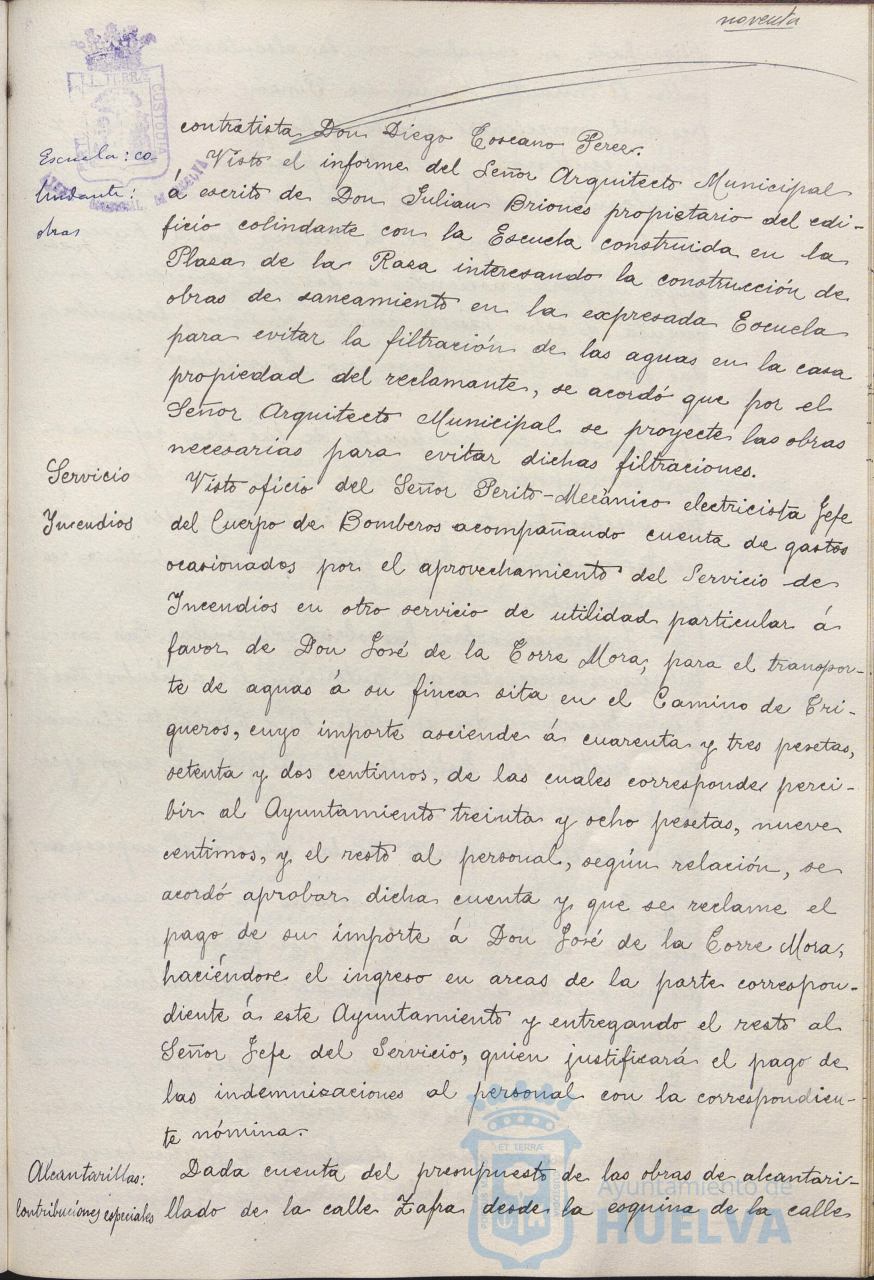 noventa
contratista Don Diego Toscano Perez.
Escuela: co-
lindante:
obras
Visto el informe del Señor Arquitecto Municipal
á escrito de Don Julian Briones propietario del edi-
ficio colindante con la Escuela construida en la
Plaza de la Rasa interesando la construcción de
obras de saneamiento en la expresada Escuela
para evitar la filtración de las aguas en la casa
propiedad del reclamante, se acordó que por el
Señor Arquitecto Municipal se proyecte las obras
necesarias para evitar dichas filtraciones.
Servicio
Incendios
Visto oficio del Señor Perito-Mecánico electricista Jefe
del Cuerpo de Bomberos acompañando cuenta de gastos
ocasionados por el aprovechamiento del Servicio de
Incendios en otro servicio de utilidad particular á
favor de Don José de la Torre Mora, para el transpor-
te de aguas á su finca sita en el Camino de Tri-
gueros, cuyo importe asciende á cuarenta y tres pesetas,
setenta y dos centimos, de las cuales corresponde perci-
bir al Ayuntamiento treinta y ocho pesetas, nueve
centimos, y el resto al personal, según relación, se
acordó aprobar dicha cuenta y que se reclame el
pago de su importe á Don José de la Torre Mora,
haciéndose el ingreso en arcas de la parte correspon-
diente á este Ayuntamiento y entregando el resto al
Señor Jefe del Servicio, quien justificará el pago de
las indemnizaciones al personal con la correspondien-
te nómina.
Alcantarillas:
Contribuciones especiales
Dada cuenta del presupuesto de las obras de alcantari-
llado de la calle Zafra desde la esquina de la calle
Ayuntamiento de
HUELVA